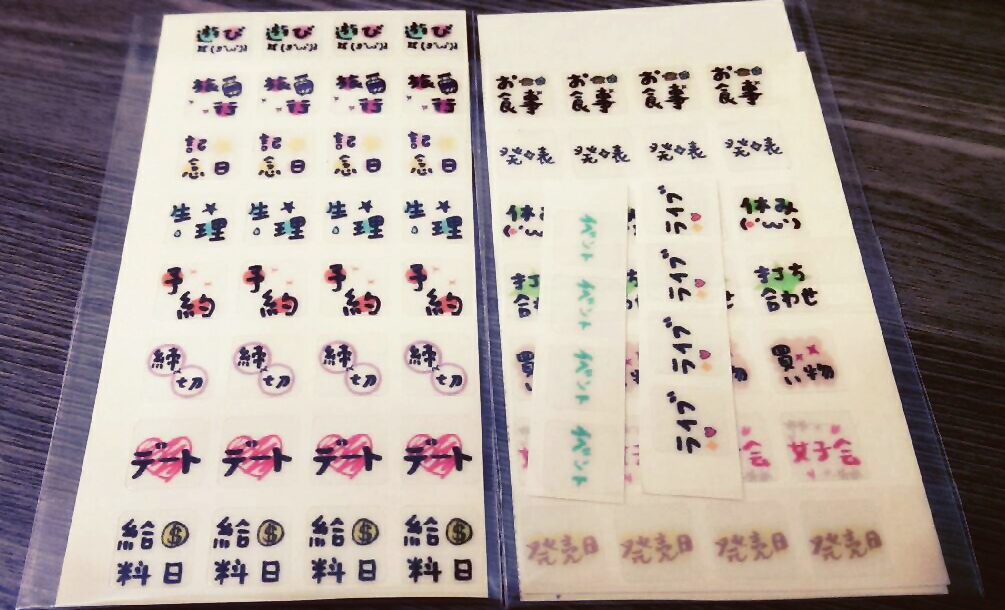 遊び 遊び 遊び 遊び
旅 旅 旅 旅
行 行 行 行
記 記 記 記
念日 念日 念日 念日
生 生 生 生
理 理 理 理
予 予 予 予
約 約 約 約
締 締 締 締
切 切 切 切
デート デート デート デート
給$ 給$ 給$ 給$
料日 料日 料日 料日
お お お お
食事 食事 食事 食事
発表 発表 発表 発表
休み 休み
打 打ち
合 合わせ
買 買
い い物
女 会 女子会
発売日 発売日 発売日 発売日
イベント
イベント
イベント
イベント
ライブ
ライブ
ライブ
ライブ